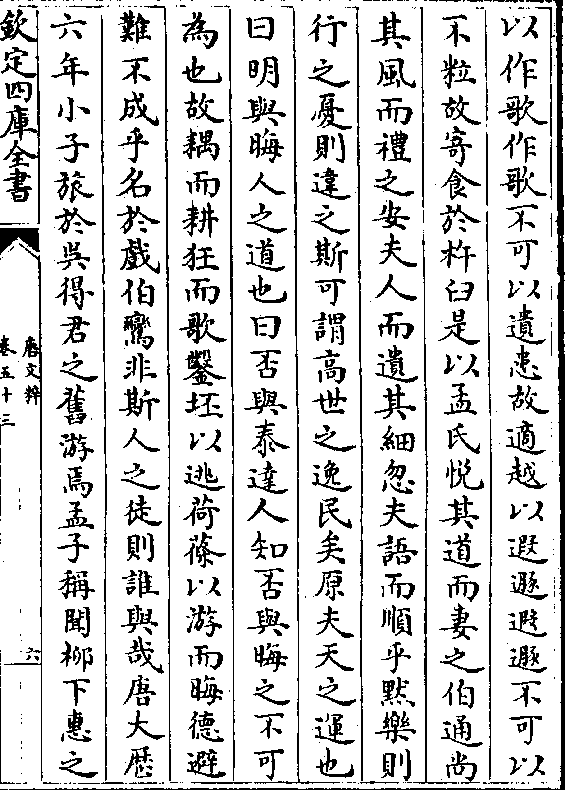 以作歌作歌不可以遺患故適越以遐遯遐遯不可以
不粒故寄食於杵臼是以孟氏悦其道而妻之伯通尚
其風而禮之安夫人而遺其細忽夫語而順乎黙樂則
行之憂則違之斯可謂髙世之逸民矣原夫天之運也
曰明與晦人之道也曰否與泰達人知否與晦之不可
為也故耦而耕狂而歌鑿坯以逃荷蓧以游而晦德避
難不成乎名於戯伯鸞非斯人之徒則誰與哉唐大厯
六年小子旅於吳得君之舊游焉孟子稱聞桞下惠之
欽定四庫全書
唐文粹
卷五十三
六